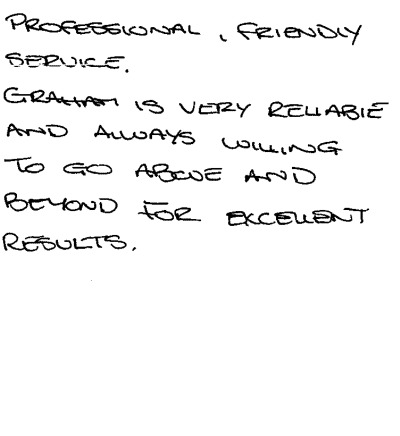 PROFESSIONAL, FRIENDLY
SERVICE.
GRAHAM IS VERY RELIABLE
AND ALWAYS WILLING
TO GO ABOVE AND
BEYOND FOR EXCELLENT
RESULTS.